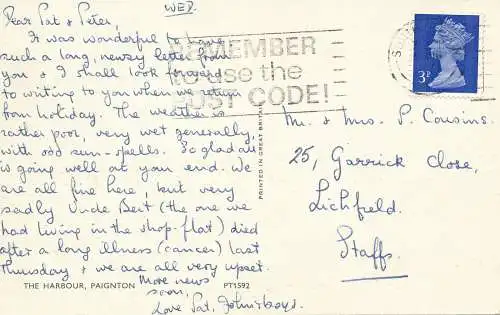 WED.
Dear Pat & Peter,
It was wonderful to have
such a long, newsy letter from
you & I shall look forward
to writing to you when we return
from holiday. The weather is
rather poor, very wet generally,
with odd sun-spells. So glad all
is going well at your end. We
are all fine here, but very
sadly Uncle Bert (the one we
had living in the shop-flat) died
after a long illness (cancer) last
Thursday & we are all very upset.
More news
soon,
Love Pat, John & boys.
THE HARBOUR, PAIGNTON
PT1592
PRINTED IN GREAT BRITAIN
REMEMBER
to use the
POST CODE!
3P
Mr. & Mrs. P. Cousins.
25, Garrick Close,
Lichfield.
Staffs.